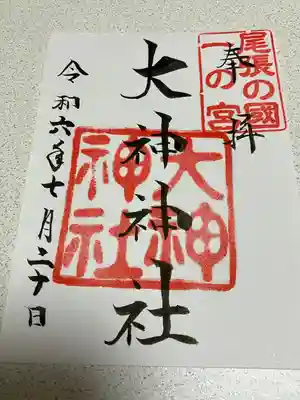 奉拝
尾張の國
一の宮
大神神社
大神
神社
令和六年七月二十日